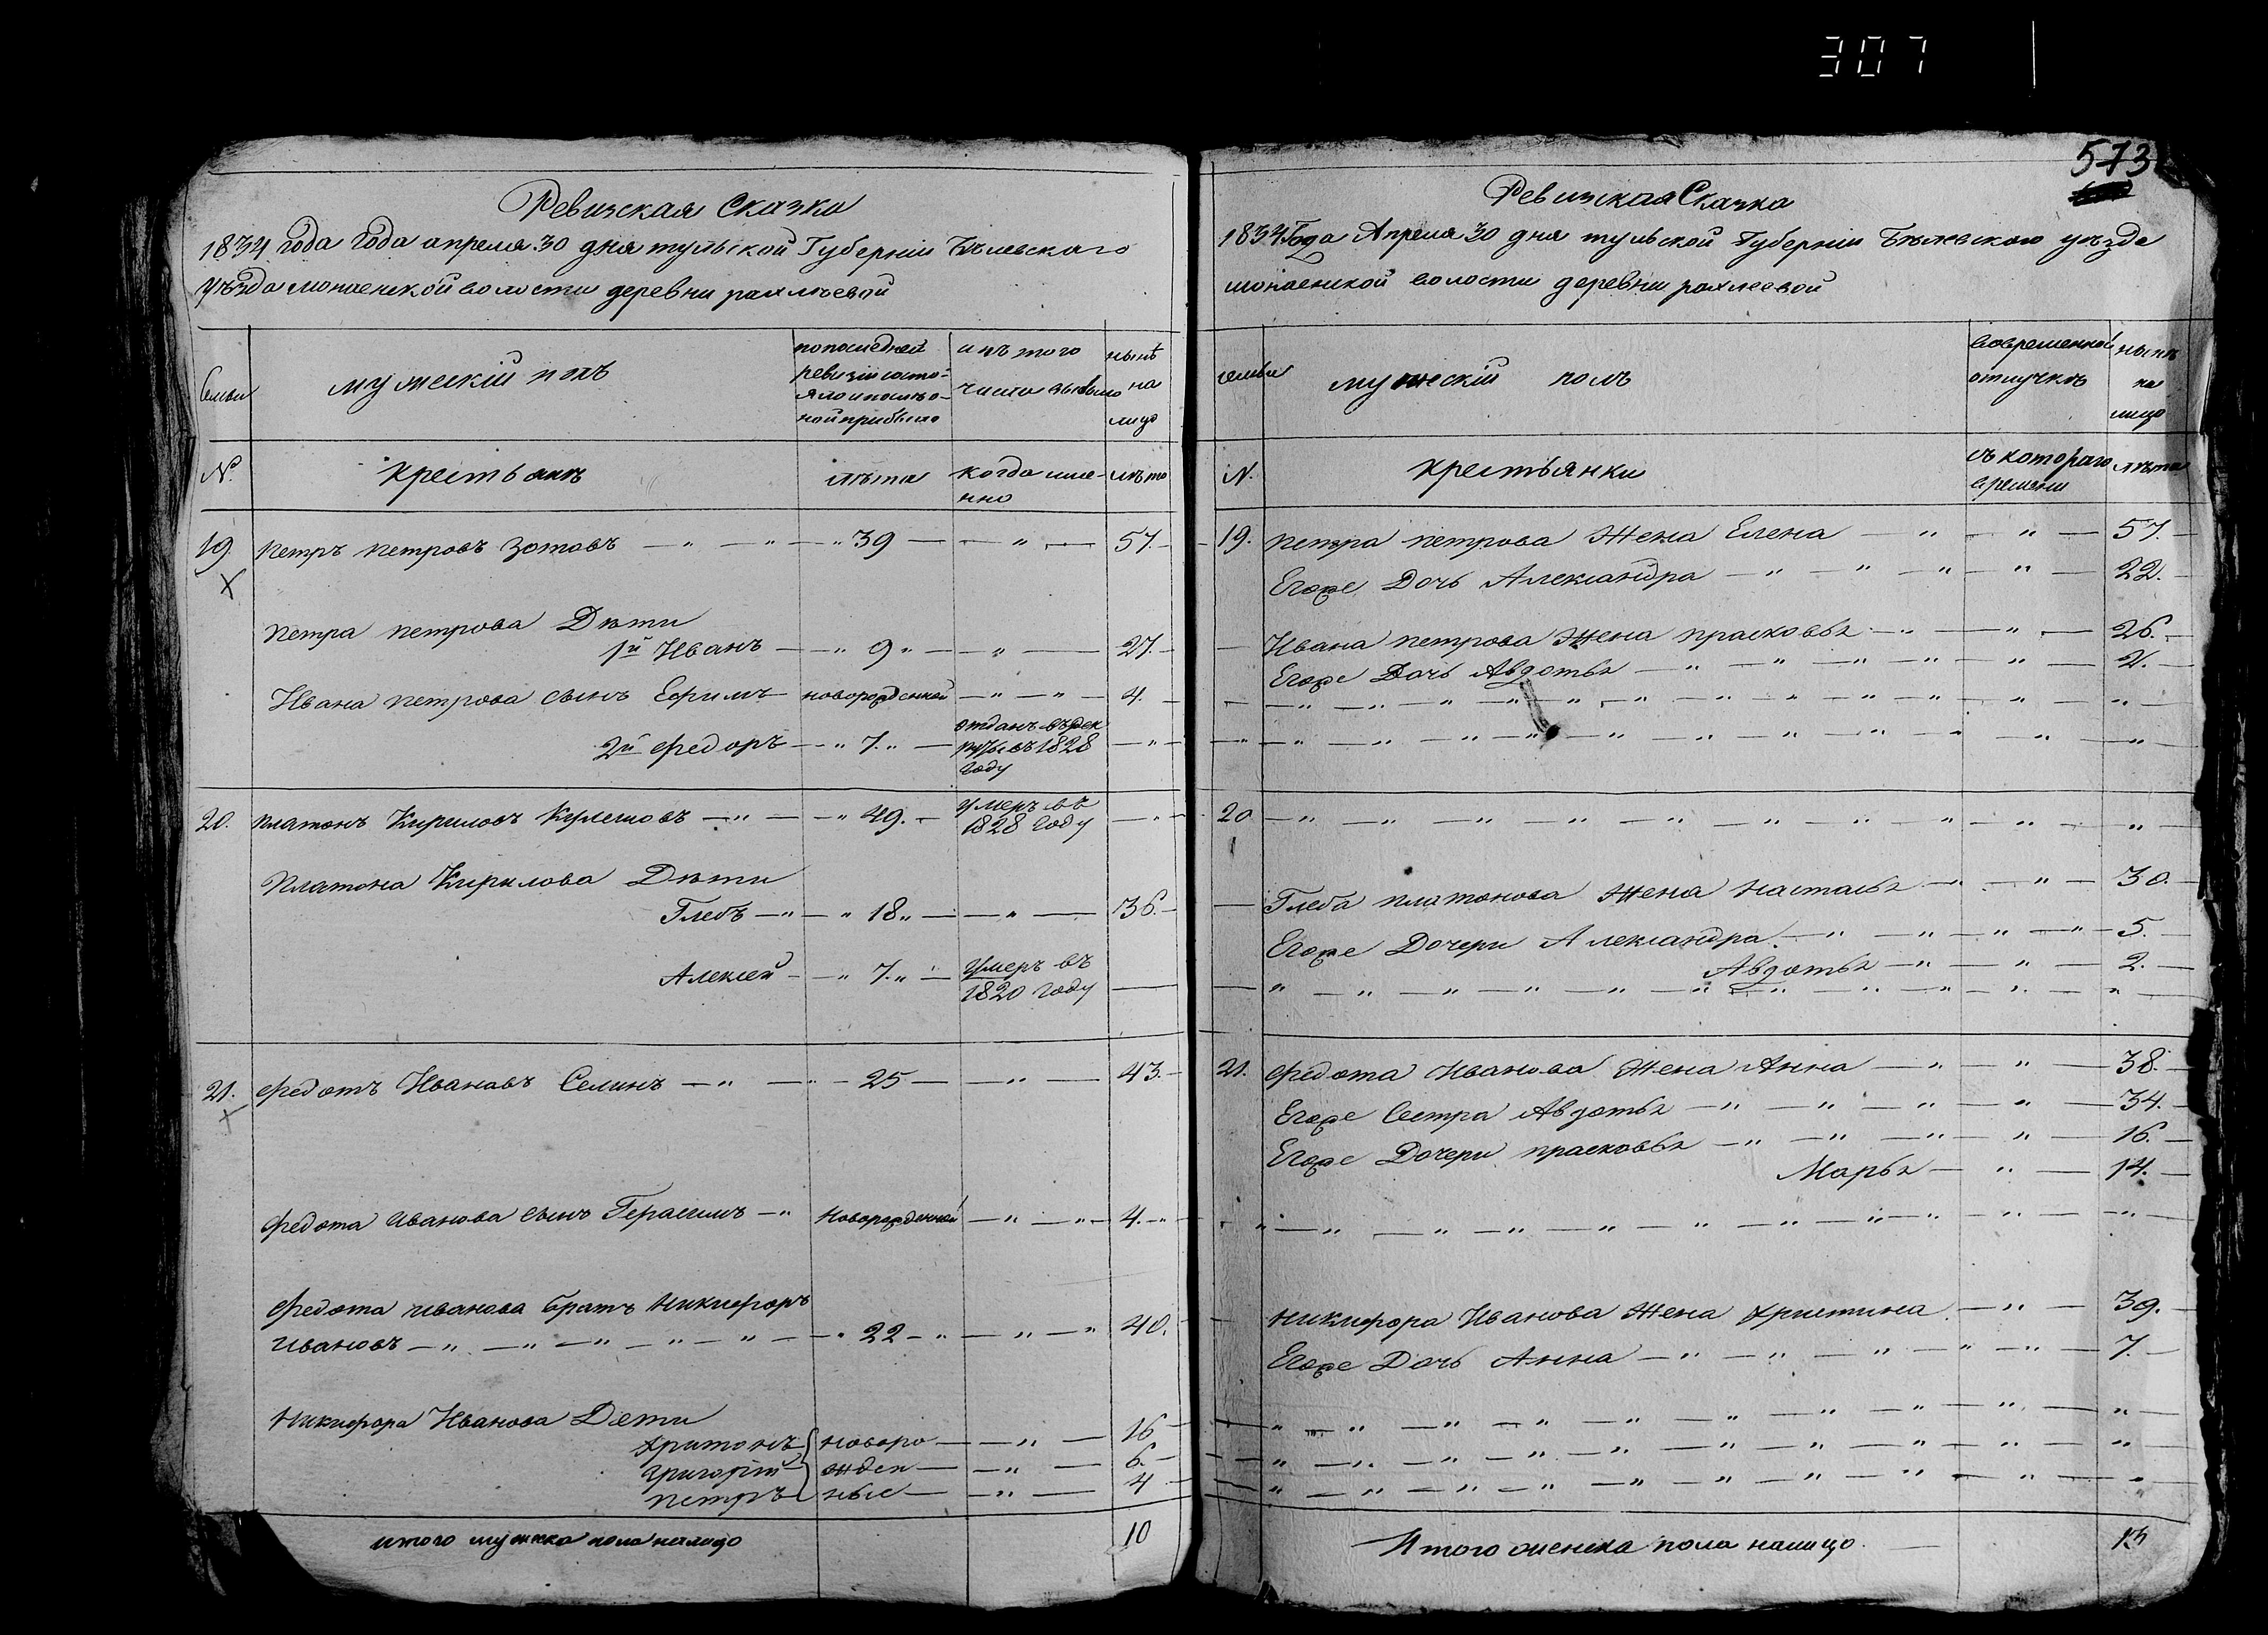 307
Ревизская Сказка
1834 года года апреля 30 дня тульской Губернiи Бѣлевскаго
уѣзда монаенской волости деревни рахлѣевой
Семьи
мужескiй полъ
по последней ревизiи состо-яло и после о-ной прибыло
изъ того числа выбыло
нынѣ на лицо
№.
крестьянѣ
лѣта
когда име-нно
лѣта
19 петръ петровъ Зотовъ — " — " — " 39 — — " — 57. —
петра петрова Дѣти
1й Иванъ — — " 9 " — — " — 27. —
Ивана петрова сынъ Ефимъ новорожденной — " — " — 4. —
2й Федоръ — — " 7. " — отданъ въ рек
руты въ 1828
Году
20. платонъ Кириловъ Кулешовъ — " — — " 49. — умеръ въ
1828 Году
Платона Кирилова Дѣти
Глебъ — " — " 18 " — — " — 36. —
Алексей — — " 7. " — Умеръ въ
1820 Году
21. Федотъ Ивановъ Селинъ — " — " — 25 — — " — 43. —
Федота иванова сынъ Герасимъ — " новорожденной — " — " — 4. — "
Федота иванова братъ Никифоръ
ивановъ — " — " — " — " — " — " 22 — " — " — " 40. —
Никифора Иванова Дети
Харитонъ новоро — — " — 16 —
Григорiй жден — — " — 6. —
петръ ные — — " — 4 —
итого мужска пола налицо 10
573
Ревизкая Сказка
1834 Года Апреля 30 дня тульской Губернiи Бѣлевскаго уѣзда
монаенской волости деревни рахлеевой
семьи
мужескiй полъ
во временной отлучкѣ
нынѣ на лицо
N.
крестьянки
съ котораго времени
лѣта
19. петра петрова Жена Елена — " — " — 57. —
Егоже Дочь Александра — " — " — " — " — 22. —
Ивана петрова Жена прасковья — " — " — 26. —
Егоже Дочь Авдотья — " — " — " — " — " — 2. —
20 — " — " — " — " — " — " — " — " — " — "
Глеба платонова Жена настасья — " — " — 30. —
Егоже Дочери Александра — " — " — " — " — 5. —
Авдотья — " — " — 2. —
21. Федота Иванова Жена Анна — " — " — 38. —
Егоже Сестра Авдотья — " — " — " — " — 34. —
Егоже Дочери прасковья — " — " — " — " — 16. —
Марья — " — 14. —
никифора Иванова Жена Христина — " — 39. —
Егоже Дочь Анна — " — " — " — " — " — 7. —
Итого женска пола налицо. — 13